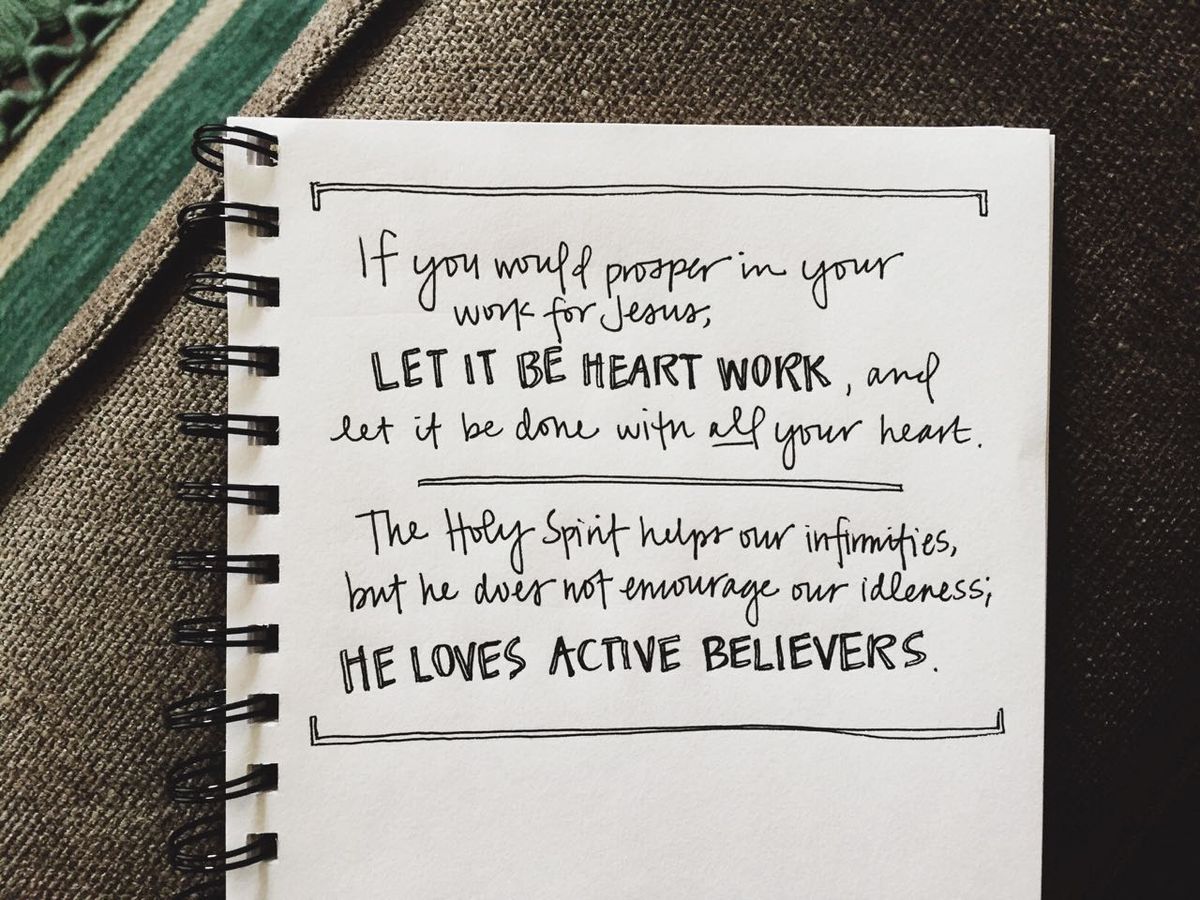 If you would prosper in your
work for Jesus,
LET IT BE HEART WORK, and
let it be done with all your heart.
The Holy Spirit helps our infirmities,
but he does not encourage our idleness;
HE LOVES ACTIVE BELIEVERS.